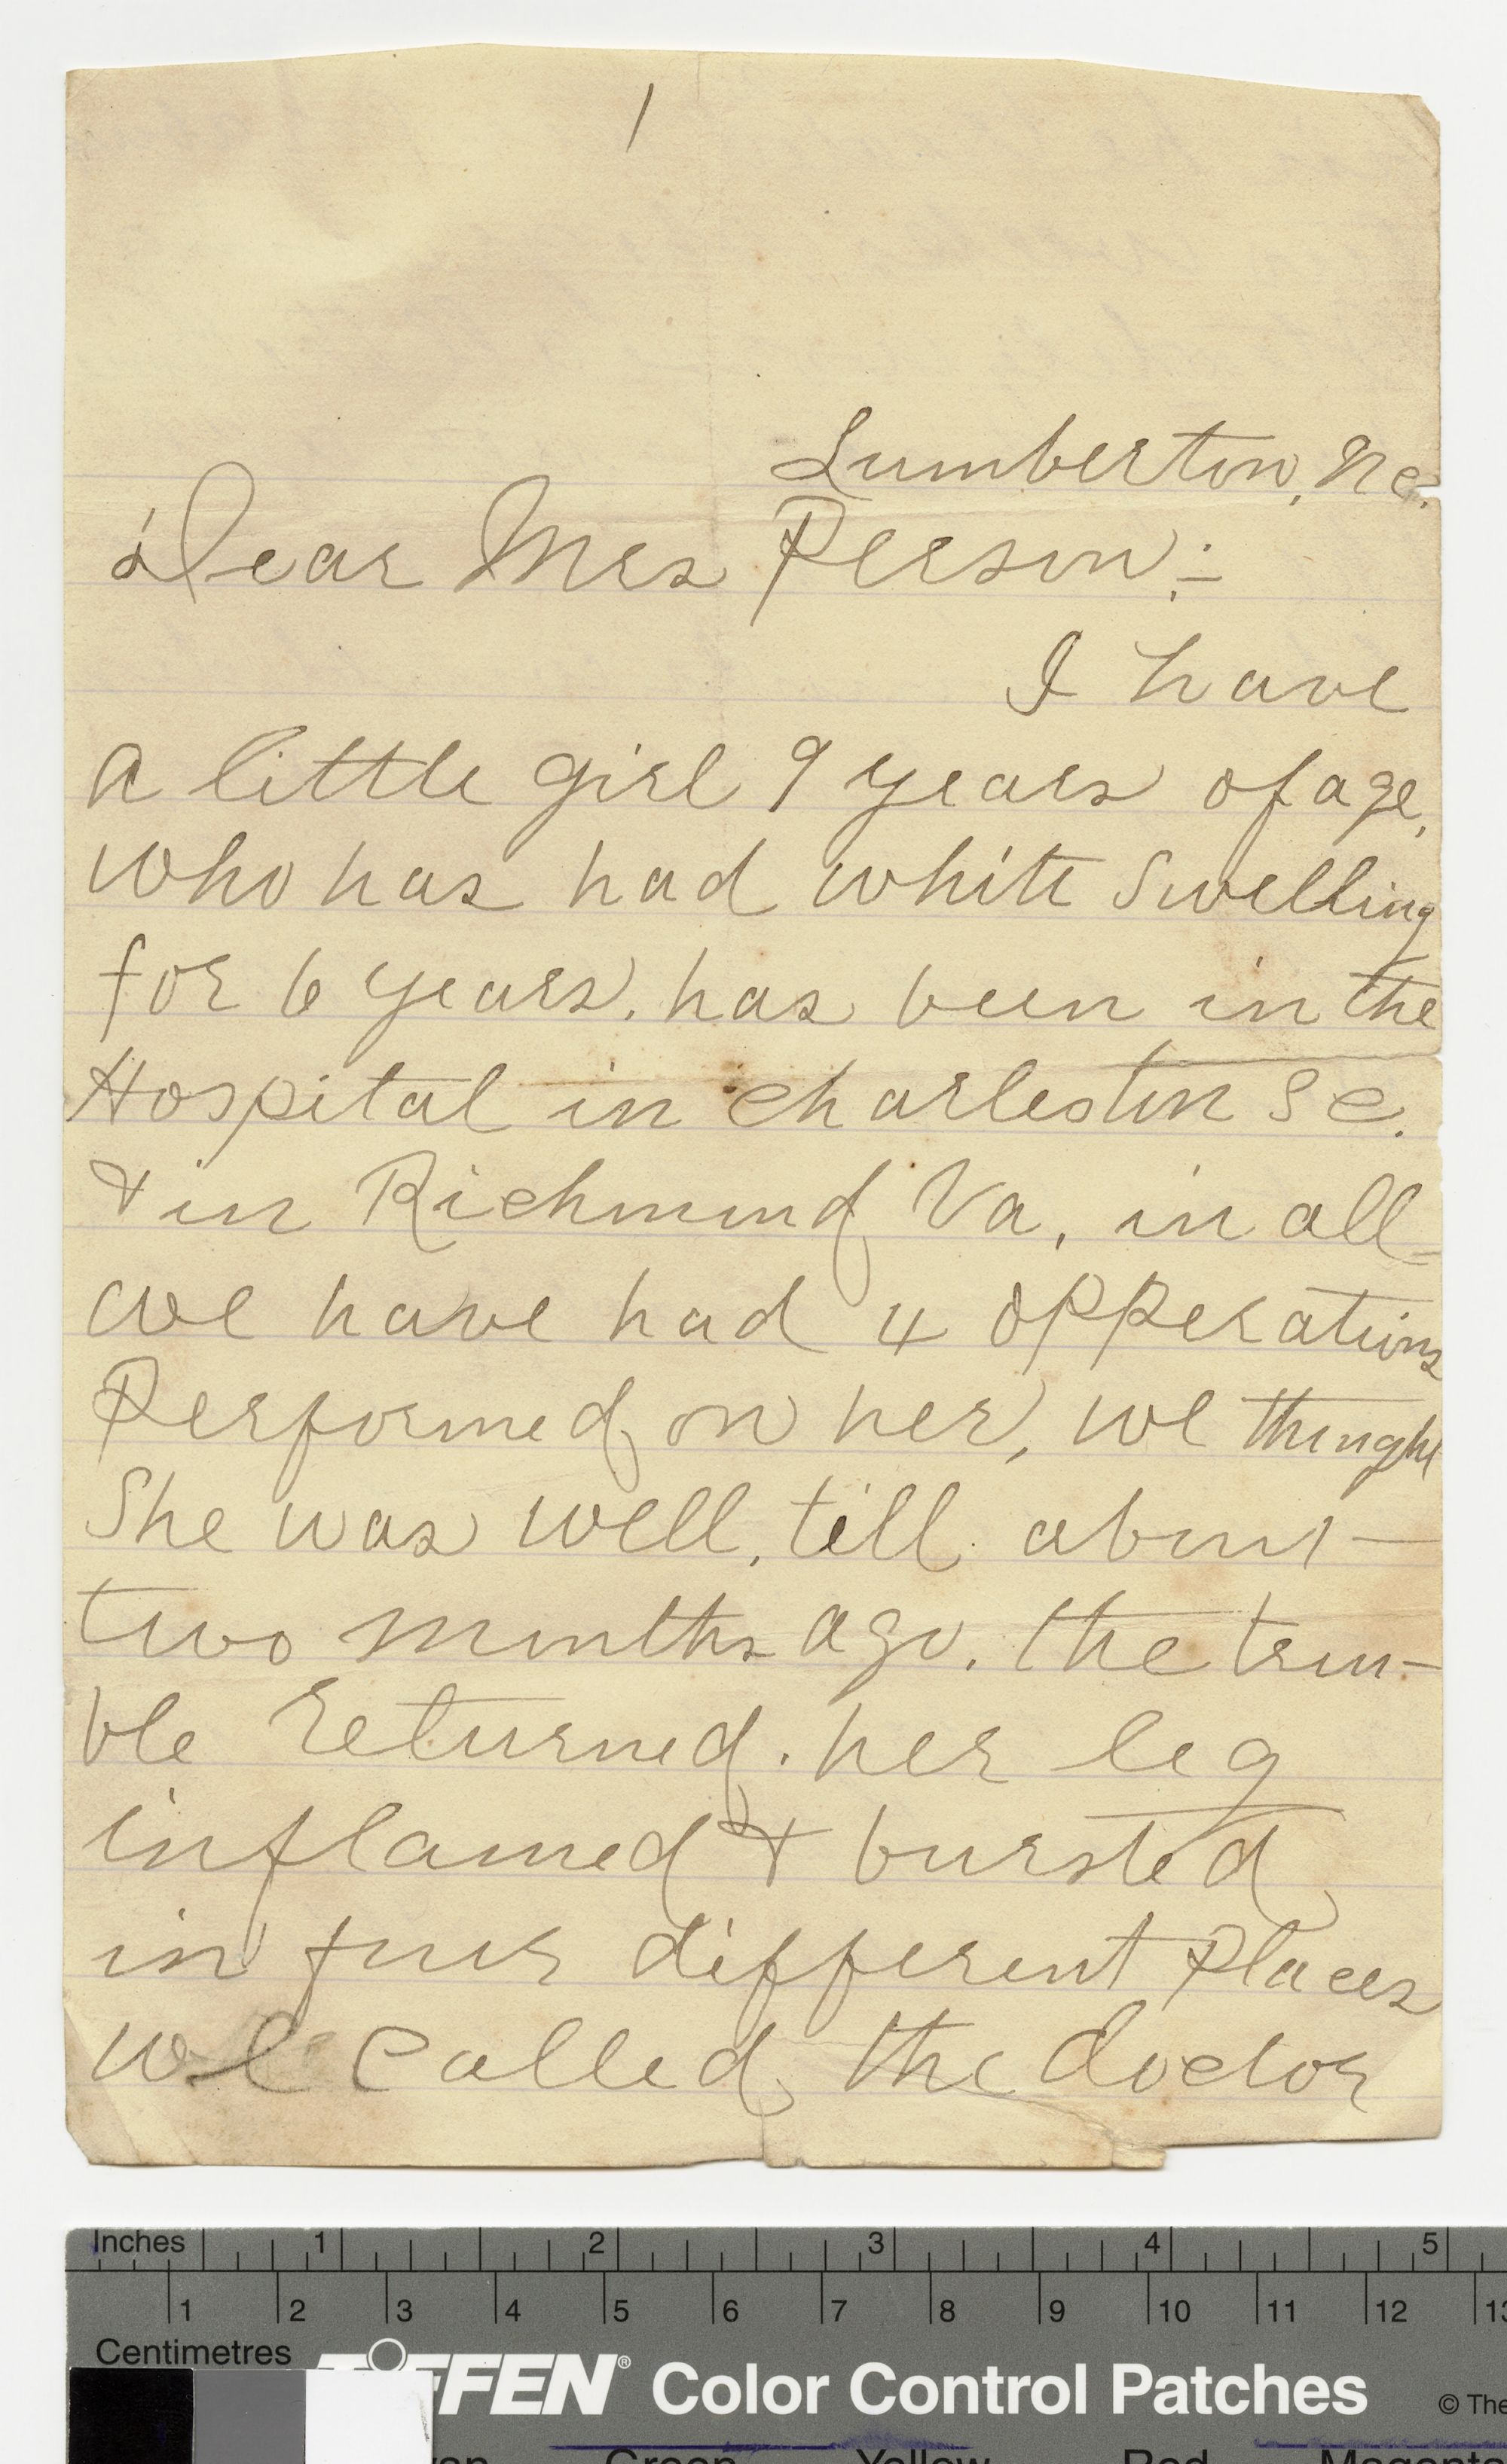 1
Lumberton, Nc.
Dear Mrs Person:-
I have
a little girl 9 years of age,
who has had white swelling
for 6 years. has been in the
Hospital in Charleston Sc.
& in Richmond Va, in all
we have had 4 opperations
Performed on her, we thought
She was well, till about
two months ago. the trou-
ble returned. her leg
inflamed & bursted
in four different places
we called the doctor
Inches 1 2 3 4 5
1 2 3 4 5 6 7 8 9 10 11 12 13
Centimetres
TIFFEN® Color Control Patches © The
Green Yellow Red Magenta